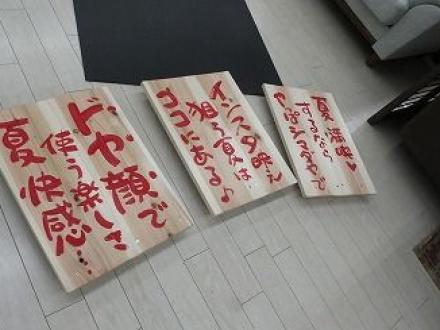 夏満喫♥
するなら
インスタ映え
狙う夏は
ココにある♪
ドヤ顔で
使う楽しさ
夏快感…